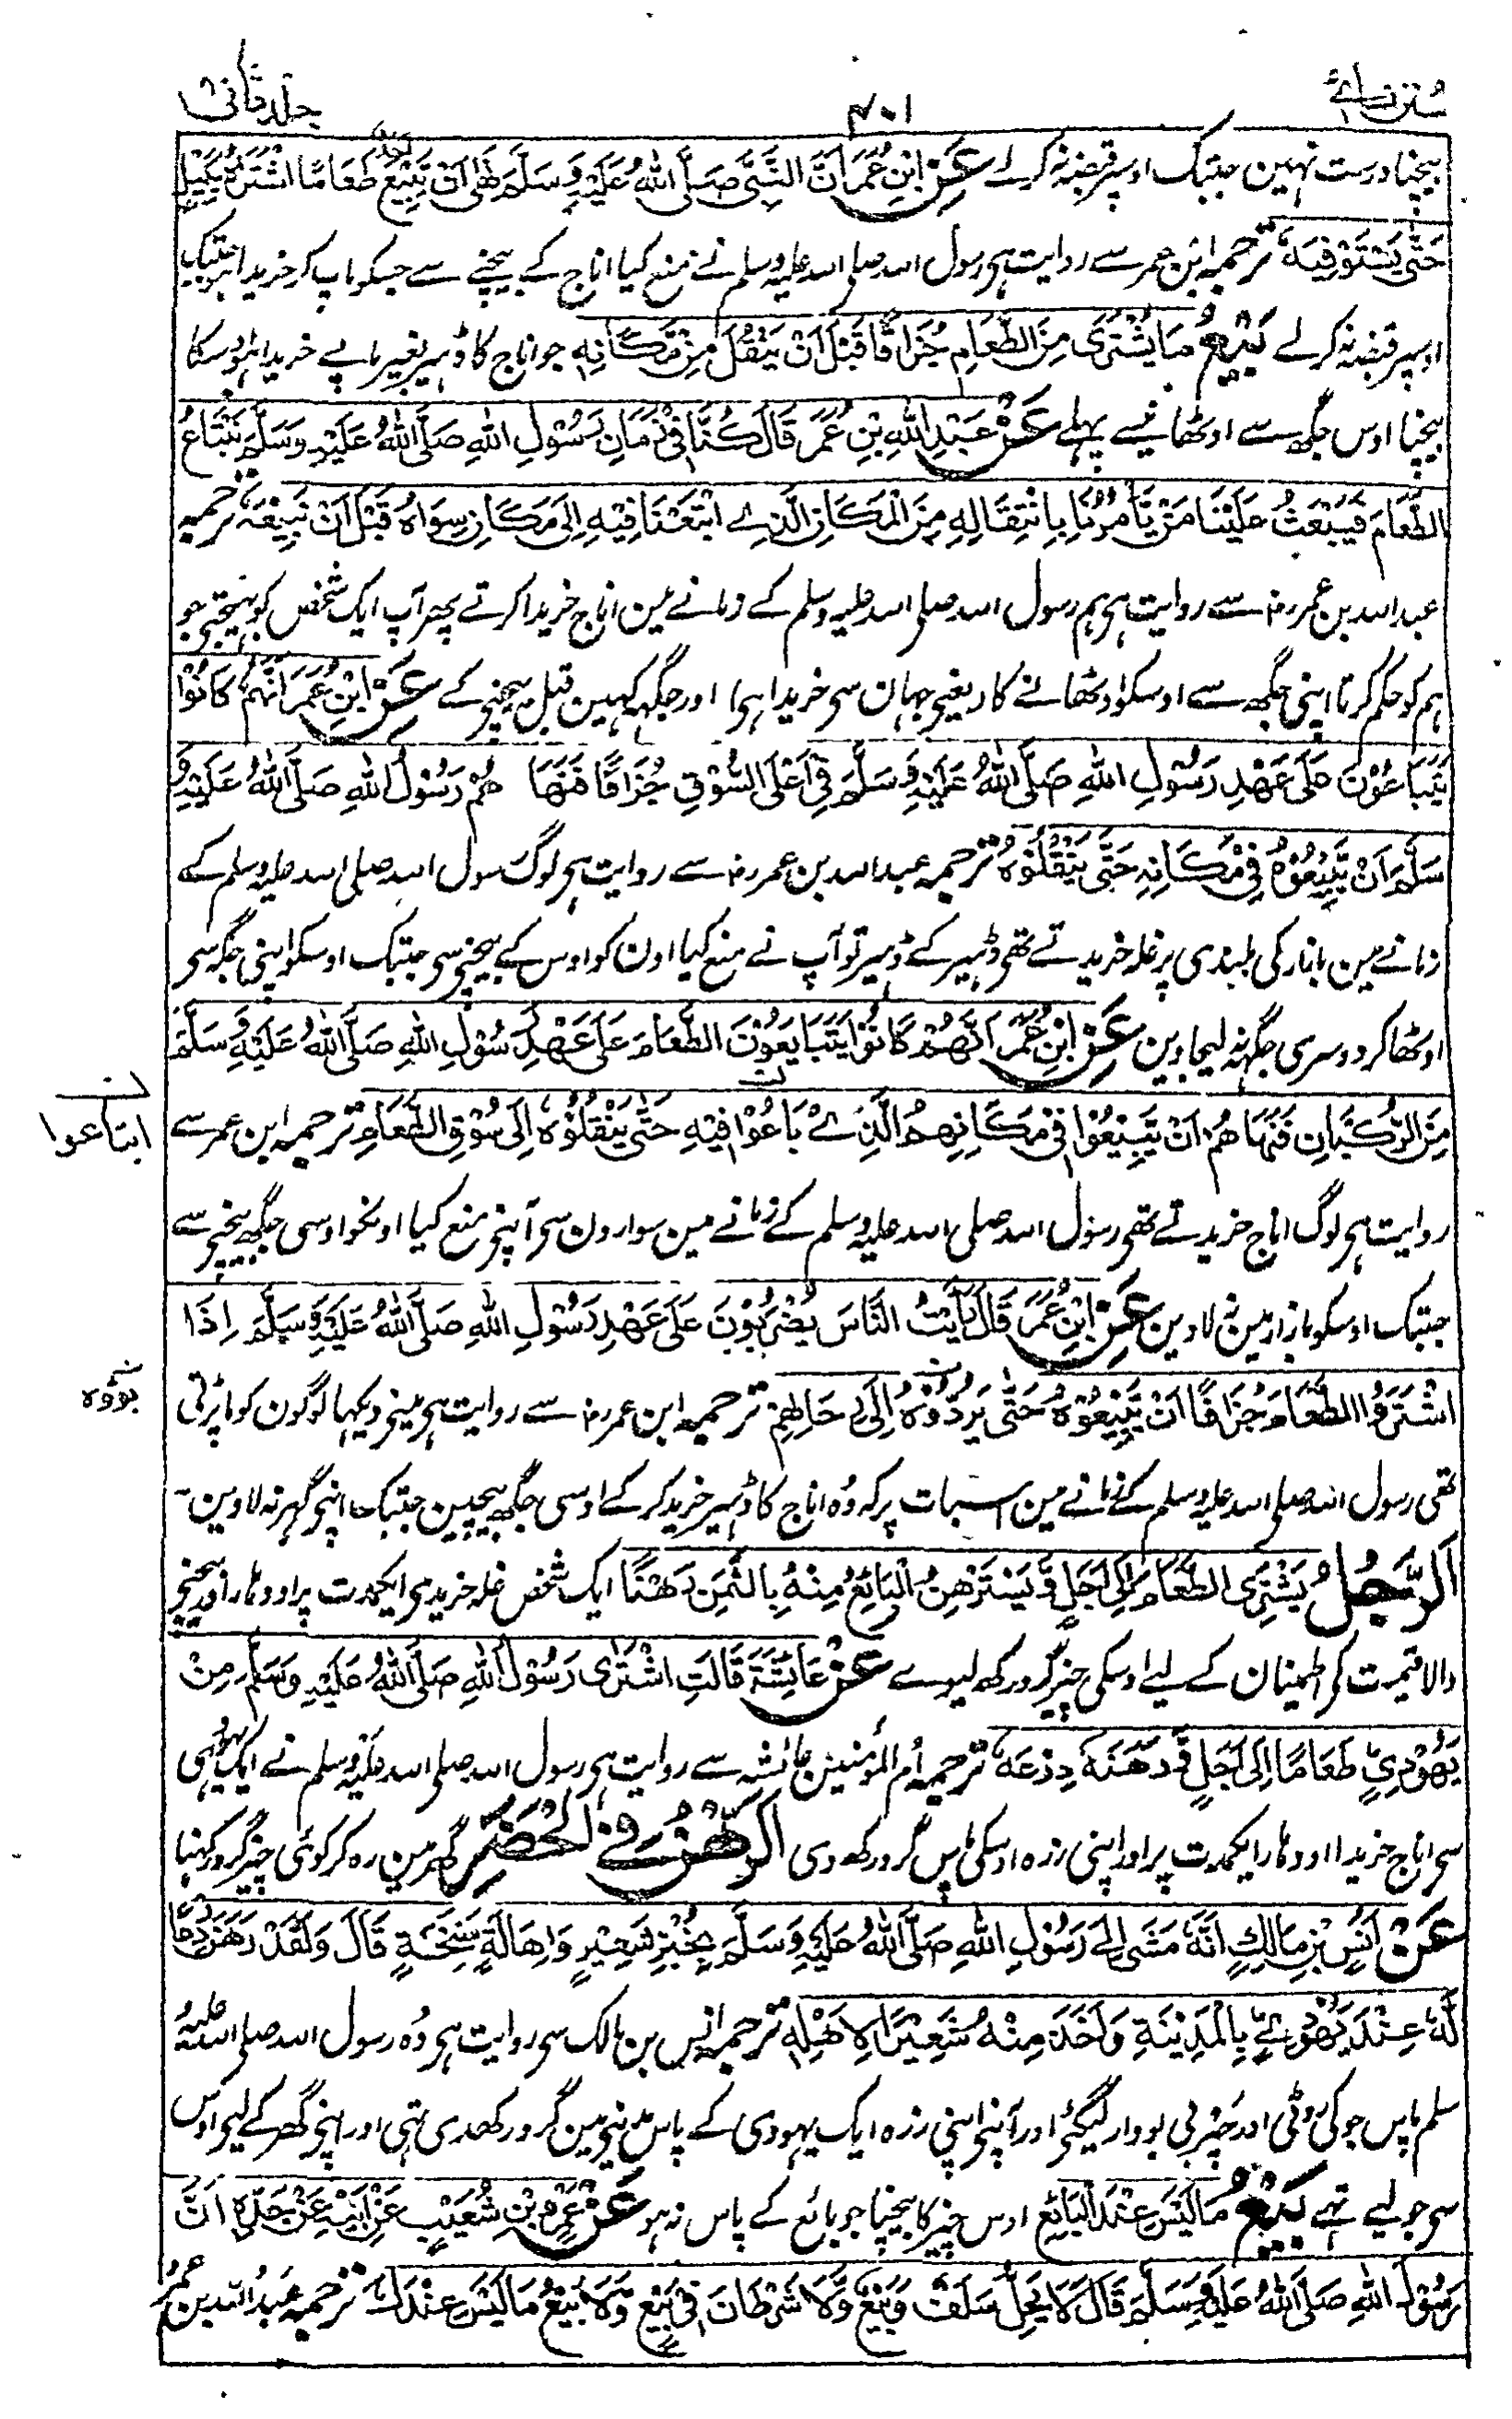 سنن نسائی
۴۰۱
جلد ثانی
بیچنا درست نہین جبتک اوسپر قبضہ نہ کرلے عَنِ ابْنِ عُمَرَ اَنَّ النَّبِیَّ صَلَّی اللّٰهُ عَلَیْهِ وَسَلَّمَ نَهٰی اَنْ یَّبِیْعَ اَحَدٌ طَعَامًا اشْتَرَاهُ بِکَیْلٍ
حَتّٰی یَسْتَوْفِیَهٗ ترجمہ ابن عمر سے روایت ہی رسول اللہ صلی اللہ علیہ وسلم نے منع کیا اناج کے بیچنے سے جسکو ماپ کر خریدا ہو جبتک
اوسپر قبضہ نہ کرلے بَیْعُ مَا یُشْتَرٰی مِنَ الطَّعَامِ جُزَافًا قَبْلَ اَنْ یُنْقَلَ مِنْ مَّکَانِهٖ جو اناج کا ڈہیر بغیر ماپے خریدا ہو اوسکا
بیچنا اوس جگہہ سے اوٹھانیسے پہلے عَنْ عَبْدِ اللّٰهِ بْنِ عُمَرَ قَالَ کُنَّا فِیْ زَمَانِ رَسُوْلِ اللّٰهِ صَلَّی اللّٰهُ عَلَیْهِ وَسَلَّمَ نَبْتَاعُ
الطَّعَامَ فَیَبْعَثُ عَلَیْنَا مَنْ یَّأْمُرُنَا بِانْتِقَالِهٖ مِنَ الْمَکَانِ الَّذِیْ ابْتَعْنَا فِیْهِ اِلٰی مَکَانٍ سِوَاهُ قَبْلَ اَنْ نَّبِیْعَهٗ ترجمہ
عبد اللہ بن عمر رض سے روایت ہی ہم رسول اللہ صلی اللہ علیہ وسلم کے زمانے مین اناج خریدا کرتے پھر آپ ایک شخص کو بہیجتی جو
ہم کو حکم کرتا اپنی جگہہ سے اوسکو اوٹھانے کا (یعنی جہان سی خریدا ہی) اور جگہہ کہین قبل بیچنی کے عَنِ ابْنِ عُمَرَ اَنَّهُمْ کَانُوْا
یَتَبَاعُوْنَ عَلٰی عَهْدِ رَسُوْلِ اللّٰهِ صَلَّی اللّٰهُ عَلَیْهِ وَسَلَّمَ فِیْ اَعْلَی السُّوْقِ جُزَافًا فَنَهَا هُمْ رَسُوْلُ اللّٰهِ صَلَّی اللّٰهُ عَلَیْهِ وَ
سَلَّمَ اَنْ یَّبِیْعُوْهُ فِیْ مَکَانِهٖ حَتّٰی یَنْقُلُوْهُ ترجمہ عبد اللہ بن عمر رض سے روایت ہی لوگ رسول اللہ صلی اللہ علیہ وسلم کے
زمانے مین بازار کی بلندی پر غلہ خریدتے تھی ڈہیر کے ڈہیر تو آپ نے منع کیا اون کو اوس کے بیچنی سی جبتک اوسکو اپنی جگہ سی
اوٹھا کر دوسری جگہ نہ لیجاوین عَنِ ابْنِ عُمَرَ اَنَّهُمْ کَانُوْا یَتَبَایَعُوْنَ الطَّعَامَ عَلٰی عَهْدِ رَسُوْلِ اللّٰهِ صَلَّی اللّٰهُ عَلَیْهِ وَسَلَّمَ
مِنَ الرُّکْبَانِ فَنَهَا هُمْ اَنْ یَّبِیْعُوْا فِیْ مَکَانِهِمُ الَّذِیْ بَاعُوْا فِیْهِ حَتّٰی یَنْقُلُوْهُ اِلٰی سُوْقِ الطَّعَامِ ترجمہ ابن عمر سے
ن ابتاعوا
روایت ہی لوگ اناج خریدتے تھی رسول اللہ صلی اللہ علیہ وسلم کے زمانے مین سوارون سی آپنی منع کیا اونکو اوسی جگہہ بیچنی سے
جبتک اوسکو بازار مین نہ لاوین عَنِ ابْنِ عُمَرَ قَالَ رَاَیْتُ النَّاسَ یُضْرَبُوْنَ عَلٰی عَهْدِ رَسُوْلِ اللّٰهِ صَلَّی اللّٰهُ عَلَیْهِ وَسَلَّمَ اِذَا
اشْتَرَوُا الطَّعَامَ جُزَافًا اَنْ یَّبِیْعُوْهُ حَتّٰی یَرُدُّوْهُ اِلٰی رِحَالِهِمْ ترجمہ ابن عمر رض سے روایت ہی مینی دیکہا لوگون کو مار پڑتی
تھی رسول اللہ صلی اللہ علیہ وسلم کے زمانے مین اسبات پر کہ وہ اناج کا ڈہیر خرید کر کے اوسی جگہہ بیچین جبتک اپنی گھر نہ لاوین۔
اَلرَّجُلُ یَشْتَرِی الطَّعَامَ اِلٰی اَجَلٍ وَّ یَسْتَرْهِنُ الْبَائِعُ مِنْهُ بِالثَّمَنِ رَهْنًا ایک شخص غلہ خریدی ایکمدت پر اودہار اور بیچنی
والا قیمت کی اطمینان کے لیے اوسکی چیز گرو رکھ لیوے عَنْ عَائِشَةَ قَالَتِ اشْتَرٰی رَسُوْلُ اللّٰهِ صَلَّی اللّٰهُ عَلَیْهِ وَسَلَّمَ مِنْ
یَهُوْدِیٍّ طَعَامًا اِلٰی اَجَلٍ وَّ رَهَنَهٗ دِرْعَهٗ ترجمہ ام المؤمنین عائشہ سے روایت ہی رسول اللہ صلی اللہ علیہ وسلم نے ایک یہودی
سی اناج خریدا اودہار ایکمدت پر اور اپنی زرہ اوسکی پاس گرو رکھ دی اَلرَّهْنُ فِی الْحَضَرِ گھر مین رہ کر کوئی چیز گرو رکہنا
عَنْ اَنَسِ بْنِ مَالِكٍ اَنَّهٗ مَشٰی اِلٰی رَسُوْلِ اللّٰهِ صَلَّی اللّٰهُ عَلَیْهِ وَسَلَّمَ بِخُبْزِ شَعِیْرٍ وَاِهَالَةٍ سَنِخَةٍ قَالَ وَلَقَدْ رَهَنَ دِرْعًا
لَّهٗ عِنْدَ یَهُوْدِیٍّ بِالْمَدِیْنَةِ وَاَخَذَ مِنْهُ شَعِیْرًا لِاَهْلِهٖ ترجمہ انس بن مالک سی روایت ہی وہ رسول اللہ صلی اللہ علیہ و
سلم پاس جو کی روٹی اور چربی بودار لیگئی اور آپنی اپنی زرہ ایک یہودی کے پاس مدینی مین گرو رکھدی تہی اور اپنی گھر کے لیی اوس
سی جو لیے تہے بَیْعُ مَا لَیْسَ عِنْدَ الْبَائِعِ اوس چیز کا بیچنا جو بائع کے پاس نہ ہو عَنْ عَمْرِو بْنِ شُعَیْبٍ عَنْ اَبِیْهِ عَنْ جَدِّهٖ اَنَّ
رَسُوْلَ اللّٰهِ صَلَّی اللّٰهُ عَلَیْهِ وَسَلَّمَ قَالَ لَا یَحِلُّ سَلَفٌ وَبَیْعٌ وَّلَا شَرْطَانِ فِیْ بَیْعٍ وَّلَا بَیْعُ مَا لَیْسَ عِنْدَكَ ترجمہ عبد اللہ بن عمر